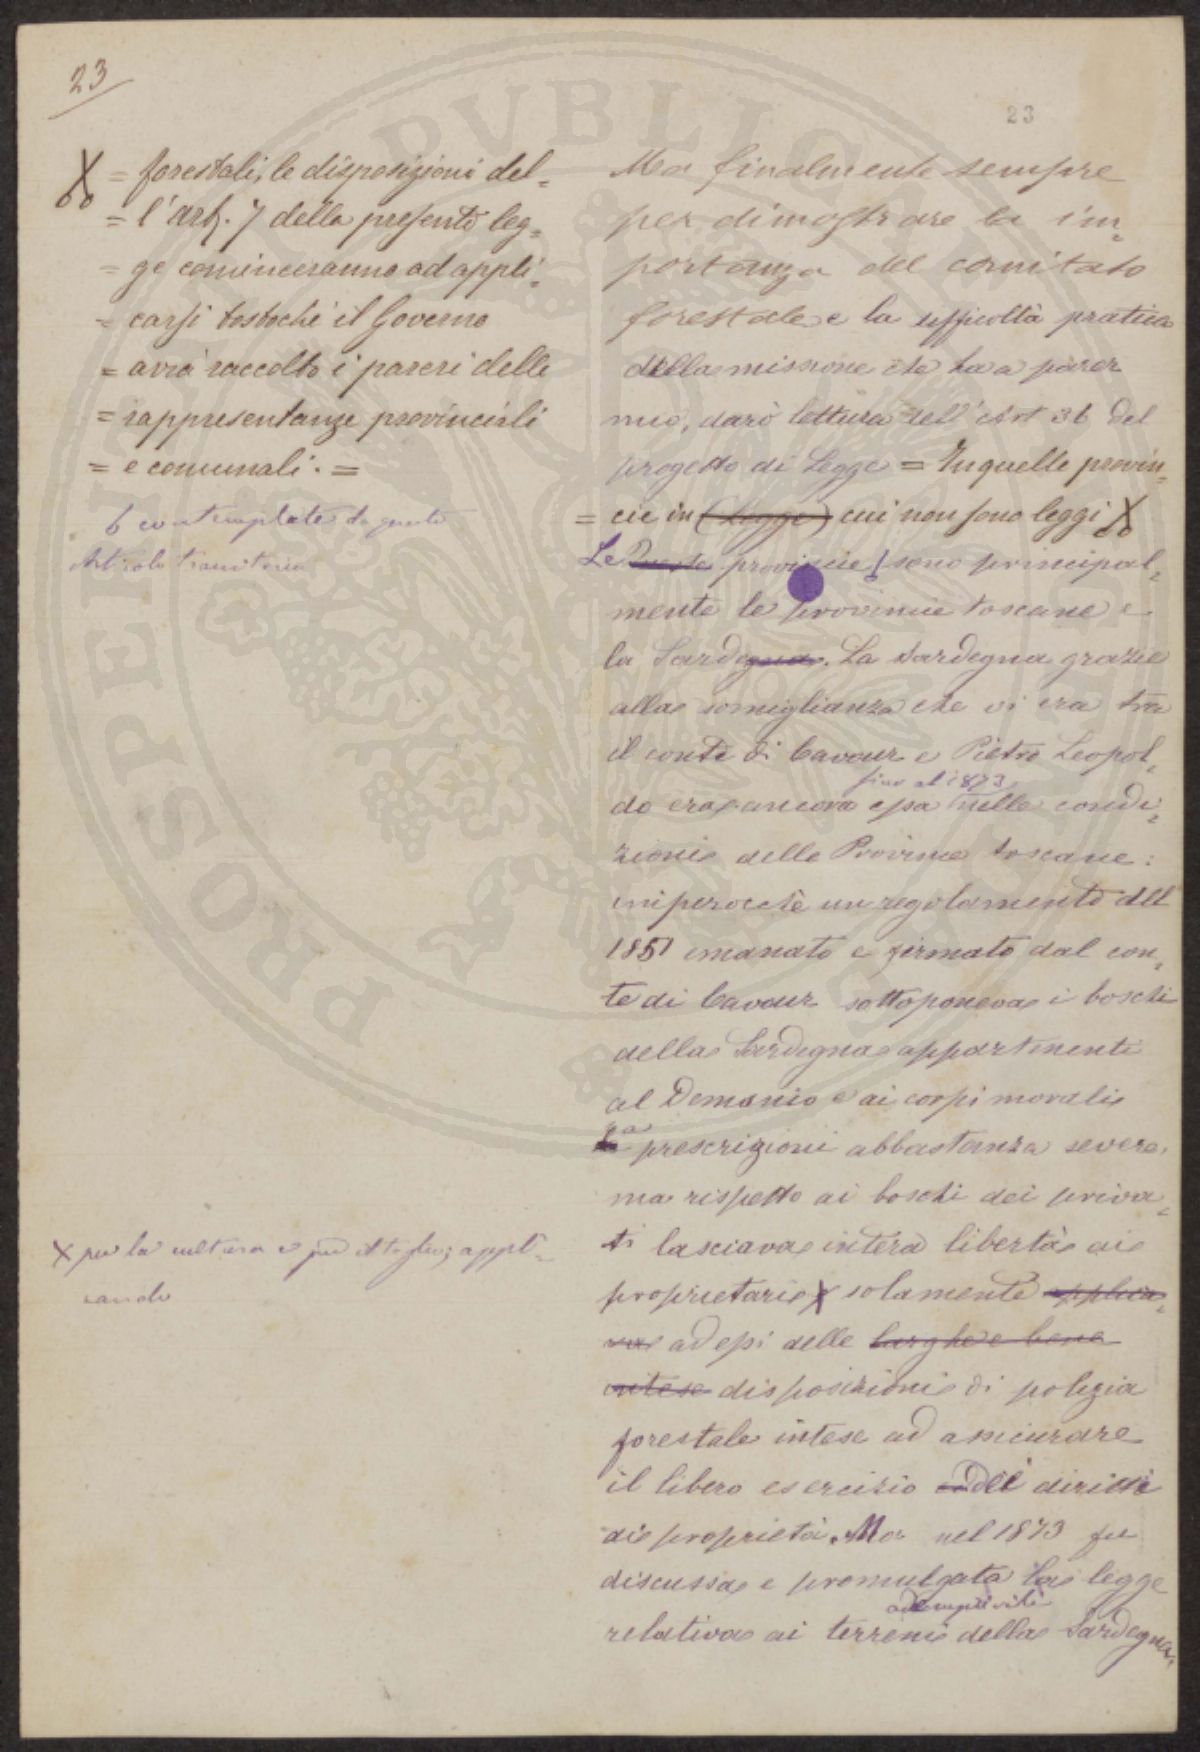 23
23
= forestali, le disposizioni del=
= l'art. 7 della presente leg=
= ge cominceranno ad appli=
= carsi tostochè il Governo
= avrà raccolto i pareri delle
= rappresentanze provinciali
= e comunali. =
contemplate da questo
Articolo transitorio
X per la cultura e pel taglio; appli=
cando
Ma finalmente sempre
per dimostrare la im=
portanza del comitato
forestale e la difficoltà pratica
della missione che ha a parer
mio, darò lettura dell'Art 36 del
progetto di Legge = In quelle provin=
= cie in (Legge) cui non sono leggi X
Le Queste provincie sono principal=
mente le provincie toscane e
la Sardegna. La Sardegna grazie
alla somiglianza che vi era tra
il conte di Cavour e Pietro Leopol=
fino al 1873
do era ancora essa nelle condi=
zioni delle Provincie toscane:
imperocchè un regolamento del
1851 emanato e firmato dal con=
te di Cavour sottoponeva i boschi
della Sardegna appartenenti
al Demanio e ai corpi morali
a prescrizioni abbastanza severe,
ma rispetto ai boschi dei priva=
ti lasciava intera libertà ai
proprietari X solamente applica=
va ad essi delle larghe e bene
intese disposizioni di polizia
forestale intese ad assicurare
il libero esercizio dei diritti
di proprietà. Ma nel 1873 fu
discussa e promulgata la legge
ademprivili
relativa ai terreni della Sardegna,
PVBLICAE
PROSPERITATI